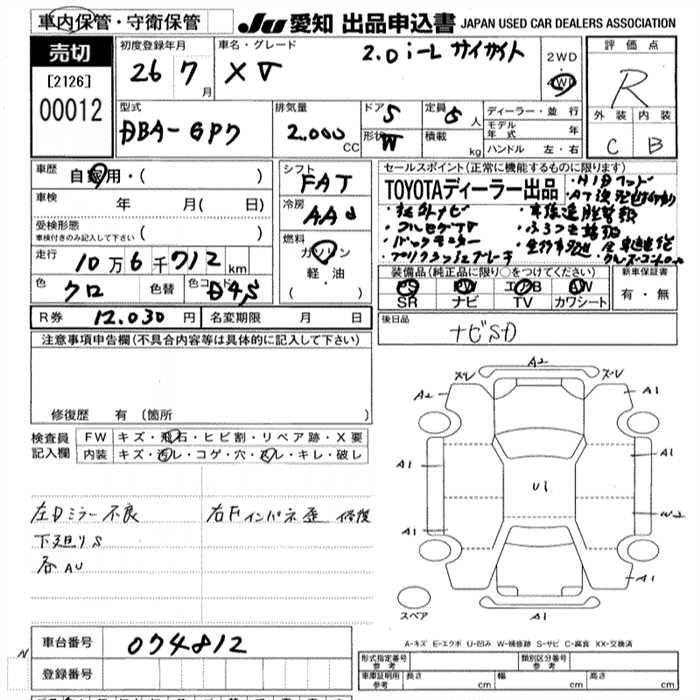 車内保管・守衛保管
JU 愛知 出品申込書 JAPAN USED CAR DEALERS ASSOCIATION
売切
[2126]
00012
初度登録年月
26 7月
車名・グレード
XV 2.0i-L サイサイト
2WD
4WD
評価点
R
外装 内装
C B
型式
DBA-GP7
排気量
2.000 CC
ドア 5
形状 W
定員 5 人
積載 kg
ディーラー・並行
モデル年式 年
ハンドル 左・右
車歴
自家用・( )
車検 年 月( 日)
受検形態
車検付きのみ記入して下さい ( )
走行 10万6千712 km
色 クロ 色替 色コード D4S
シフト
FAT
冷房
AAC
燃料
ガソリン
軽・油
( )
セールスポイント(正常に機能するものに限ります)
TOYOTAディーラー出品
・社外ナビ
・フルセグTV
・バックモニター
・プリクラッシュブレーキ
装備品(純正品に限り○をつけてください)
PS PW エアB AW
SR ナビ TV カワシート
新車保証書
有・無
R券 12.030 円 名変期限 月 日
後日品
ナビSD
注意事項申告欄(不具合内容等は具体的に記入して下さい)
修復歴 有 (箇所 )
検査員記入欄
FW キズ・飛石・ヒビ割・リペア跡・X要
内装 キズ・汚レ・コゲ・穴・スレ・キレ・破レ
左Dミラー不良
下廻りS
各AU
右Fインパネ歪 修復
A2
スレ
スレ
A2
A1
A1
A1
U1
W2
A1
A1
A1
スペア
A-キズ E-エクボ U-凹み W-補修跡 S-サビ C-腐食 XX-交換済
車台番号 074812
N
登録番号
形式指定番号 参考
類別区分番号 参考
車庫証明用 参考 長さ cm 幅 cm 高さ cm